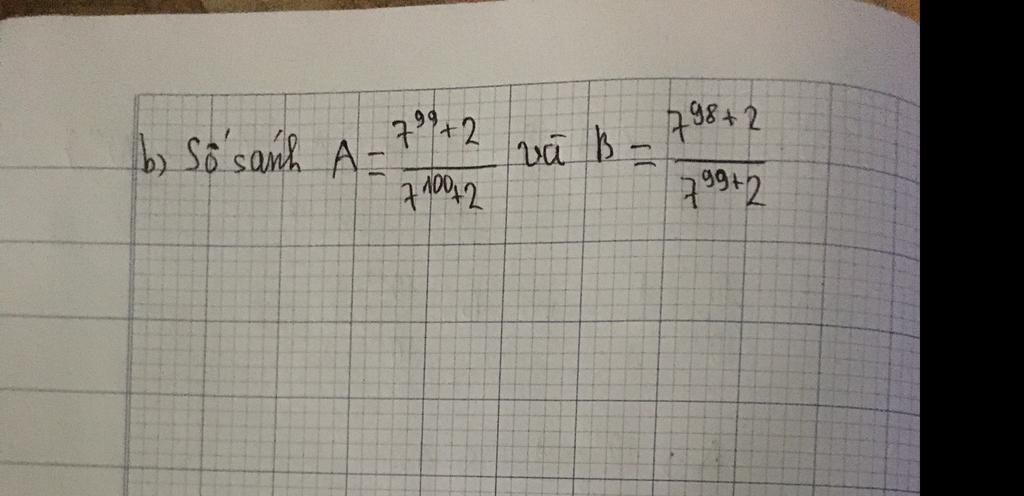 b) Số sánh A = \frac{7^{99}+2}{7^{100}+2} và B = \frac{7^{98}+2}{7^{99}+2}